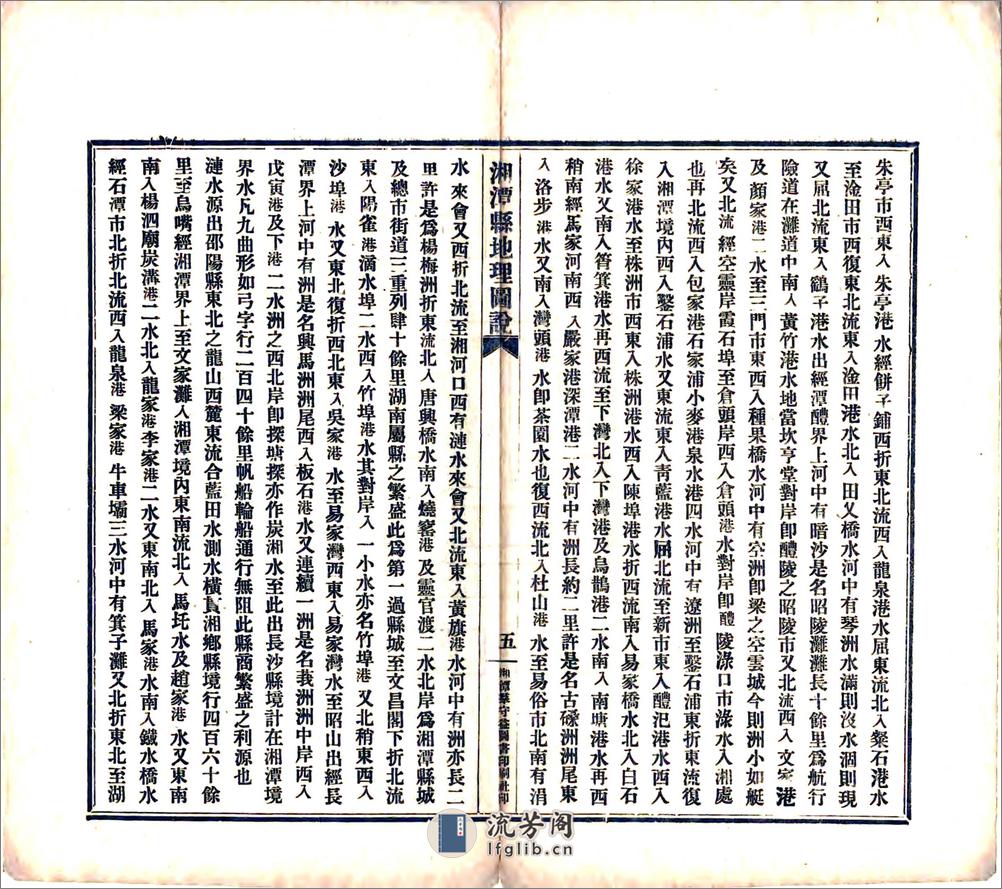 朱亭市西東入朱亭港水經餅子鋪西折東北流西入龍泉港水屈東流北入粲石港水
至淦田市西復東北流東入淦田港水北入田乂橋水河中有琴洲水滿則沒水涸則現
又屈北流東入鶴子港水出經潭醴界上河中有暗沙是名昭陵灘灘長十餘里爲航行
險道在灘道中南入黃竹港水地當坎亨堂對岸即醴陵之昭陵市又北流西入文家港
及顏家港二水至三門市東西入種果橋水河中有空洲即梁之空雲城今則洲小如艇
矣又北流經空靈岸霞石埠至倉頭岸西入倉頭港水對岸即醴陵淥口市淥水入湘處
也再北流西入包家港石家浦小麥港泉水港四水河中有遼洲至鑿石浦東折東流復
入湘潭境內西入鑿石浦水又東流東入靑藍港水屈北流至新市東入醴汜港水西入
徐家港水至株洲市西東入株洲港水西入陳埠港水折西流南入易家橋水北入白石
港水又南入筲箕港水再西流至下灣北入下灣港及烏鵲港二水南入南塘港水再西
稍南經馬家河南西入嚴家港深潭港二水河中有洲長約二里許是名古磉洲洲尾東
入洛步港水又南入灣頭港水即茶園水也復西流北入杜山港水至易俗市北南有涓
湘潭縣地理圖說
五
水來會又西折北流至湘河口西有漣水來會又北流東入黃旗港水河中有洲亦長二
里許是爲楊梅洲折東流北入唐興橋水南入燒窰港及靈官渡二水北岸爲湘潭縣城
及總市街道三重列肆十餘里湖南屬縣之繁盛此爲第一過縣城至文昌閣下折北流
東入陽雀港滴水埠二水西入竹埠港水其對岸入一小水亦名竹埠港又北稍東西入
沙埠港水又東北復折西北東入吳家港水至易家灣西東入易家灣水至昭山出經長
潭界上河中有洲是名興馬洲洲尾西入板石港水又連續一洲是名我洲洲中岸西入
戊寅港及下港二水洲之西北岸即探塘探亦作炭湘水至此出長沙縣境計在湘潭境
界水凡九曲形如弓字行二百四十餘里帆船輪船通行無阻此縣商繁盛之利源也
漣水源出邵陽縣東北之龍山西麓東流合藍田水測水橫貫湘鄉縣境行四百六十餘
里至烏嘴經湘潭界上至文家灘入湘潭境內東南流北入馬圫水及趙家港水又東南
南入楊泗廟炭溝港二水北入龍家港李家港二水又東南北入馬家港水南入鐵水橋水
經石潭市北折北流西入龍泉港梁家港牛車壩三水河中有箕子灘又北折東北至湖
流芳阁
lfglib.cn.com